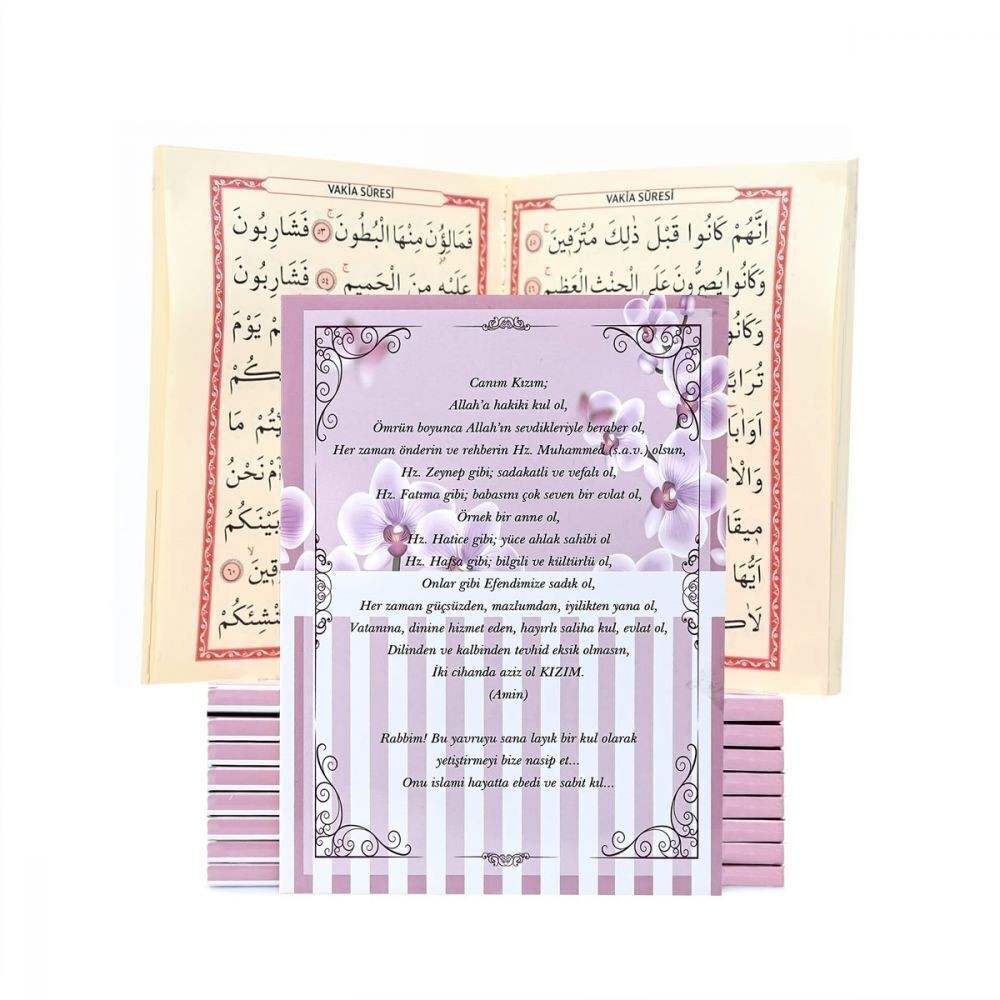 VAKİA SÛRESİ
اِنَّهُمْ كَانُوا قَبْلَ ذٰلِكَ مُتْرَفٖينَ ٤٥
وَكَانُوا يُصِرُّونَ عَلَى الْحِنْثِ الْعَظٖيمِ ٤٦
وَكَانُوا
تُرَابًا
وَالْاٰ
مٖيقَا
اَيُّهَا
VAKİA SÛRESİ
فَمَالِؤُنَ مِنْهَا الْبُطُونَ ٥٣ فَشَارِبُونَ
عَلَيْهِ مِنَ الْحَمٖيمِ ٥٤ فَشَارِبُونَ
يَوْمَ
مَا
نَحْنُ
بَيْنَكُمُ
٦٠
Canım Kızım;
Allah'a hakiki kul ol,
Ömrün boyunca Allah'ın sevdikleriyle beraber ol,
Her zaman önderin ve rehberin Hz. Muhammed (s.a.v.) olsun,
Hz. Zeynep gibi; sadakatli ve vefalı ol,
Hz. Fatıma gibi; babasını çok seven bir evlat ol,
Örnek bir anne ol,
Hz. Hatice gibi; yüce ahlak sahibi ol
Hz. Hafsa gibi; bilgili ve kültürlü ol,
Onlar gibi Efendimize sadık ol,
Her zaman güçsüzden, mazlumdan, iyilikten yana ol,
Vatanına, dinine hizmet eden, hayırlı saliha kul, evlat ol,
Dilinden ve kalbinden tevhid eksik olmasın,
İki cihanda aziz ol KIZIM.
(Amin)
Rabbim! Bu yavruyu sana layık bir kul olarak
yetiştirmeyi bize nasip et...
Onu islami hayatta ebedi ve sabit kıl...